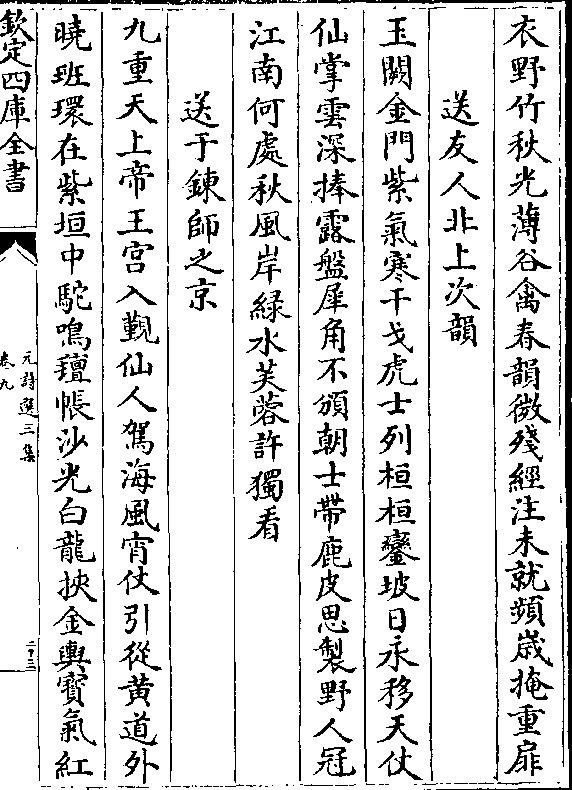 衣野竹秋光薄谷禽春韻微殘經注未就頻歲掩重扉
送友人北上次韻
玉闕金門紫氣寒干戈虎士列桓桓鑾坡日永移天仗
仙掌雲深捧露盤犀角不頒朝士帶鹿皮思製野人冠
江南何處秋風岸緑水芙蓉許獨看
送于鍊師之京
九重天上帝王宫入覲仙人駕海風宵仗引從黄道外
曉班環在紫垣中駝鳴氊帳沙光白龍挾金輿寳氣紅
欽定四庫全書
元詩選三集
卷九
二十三